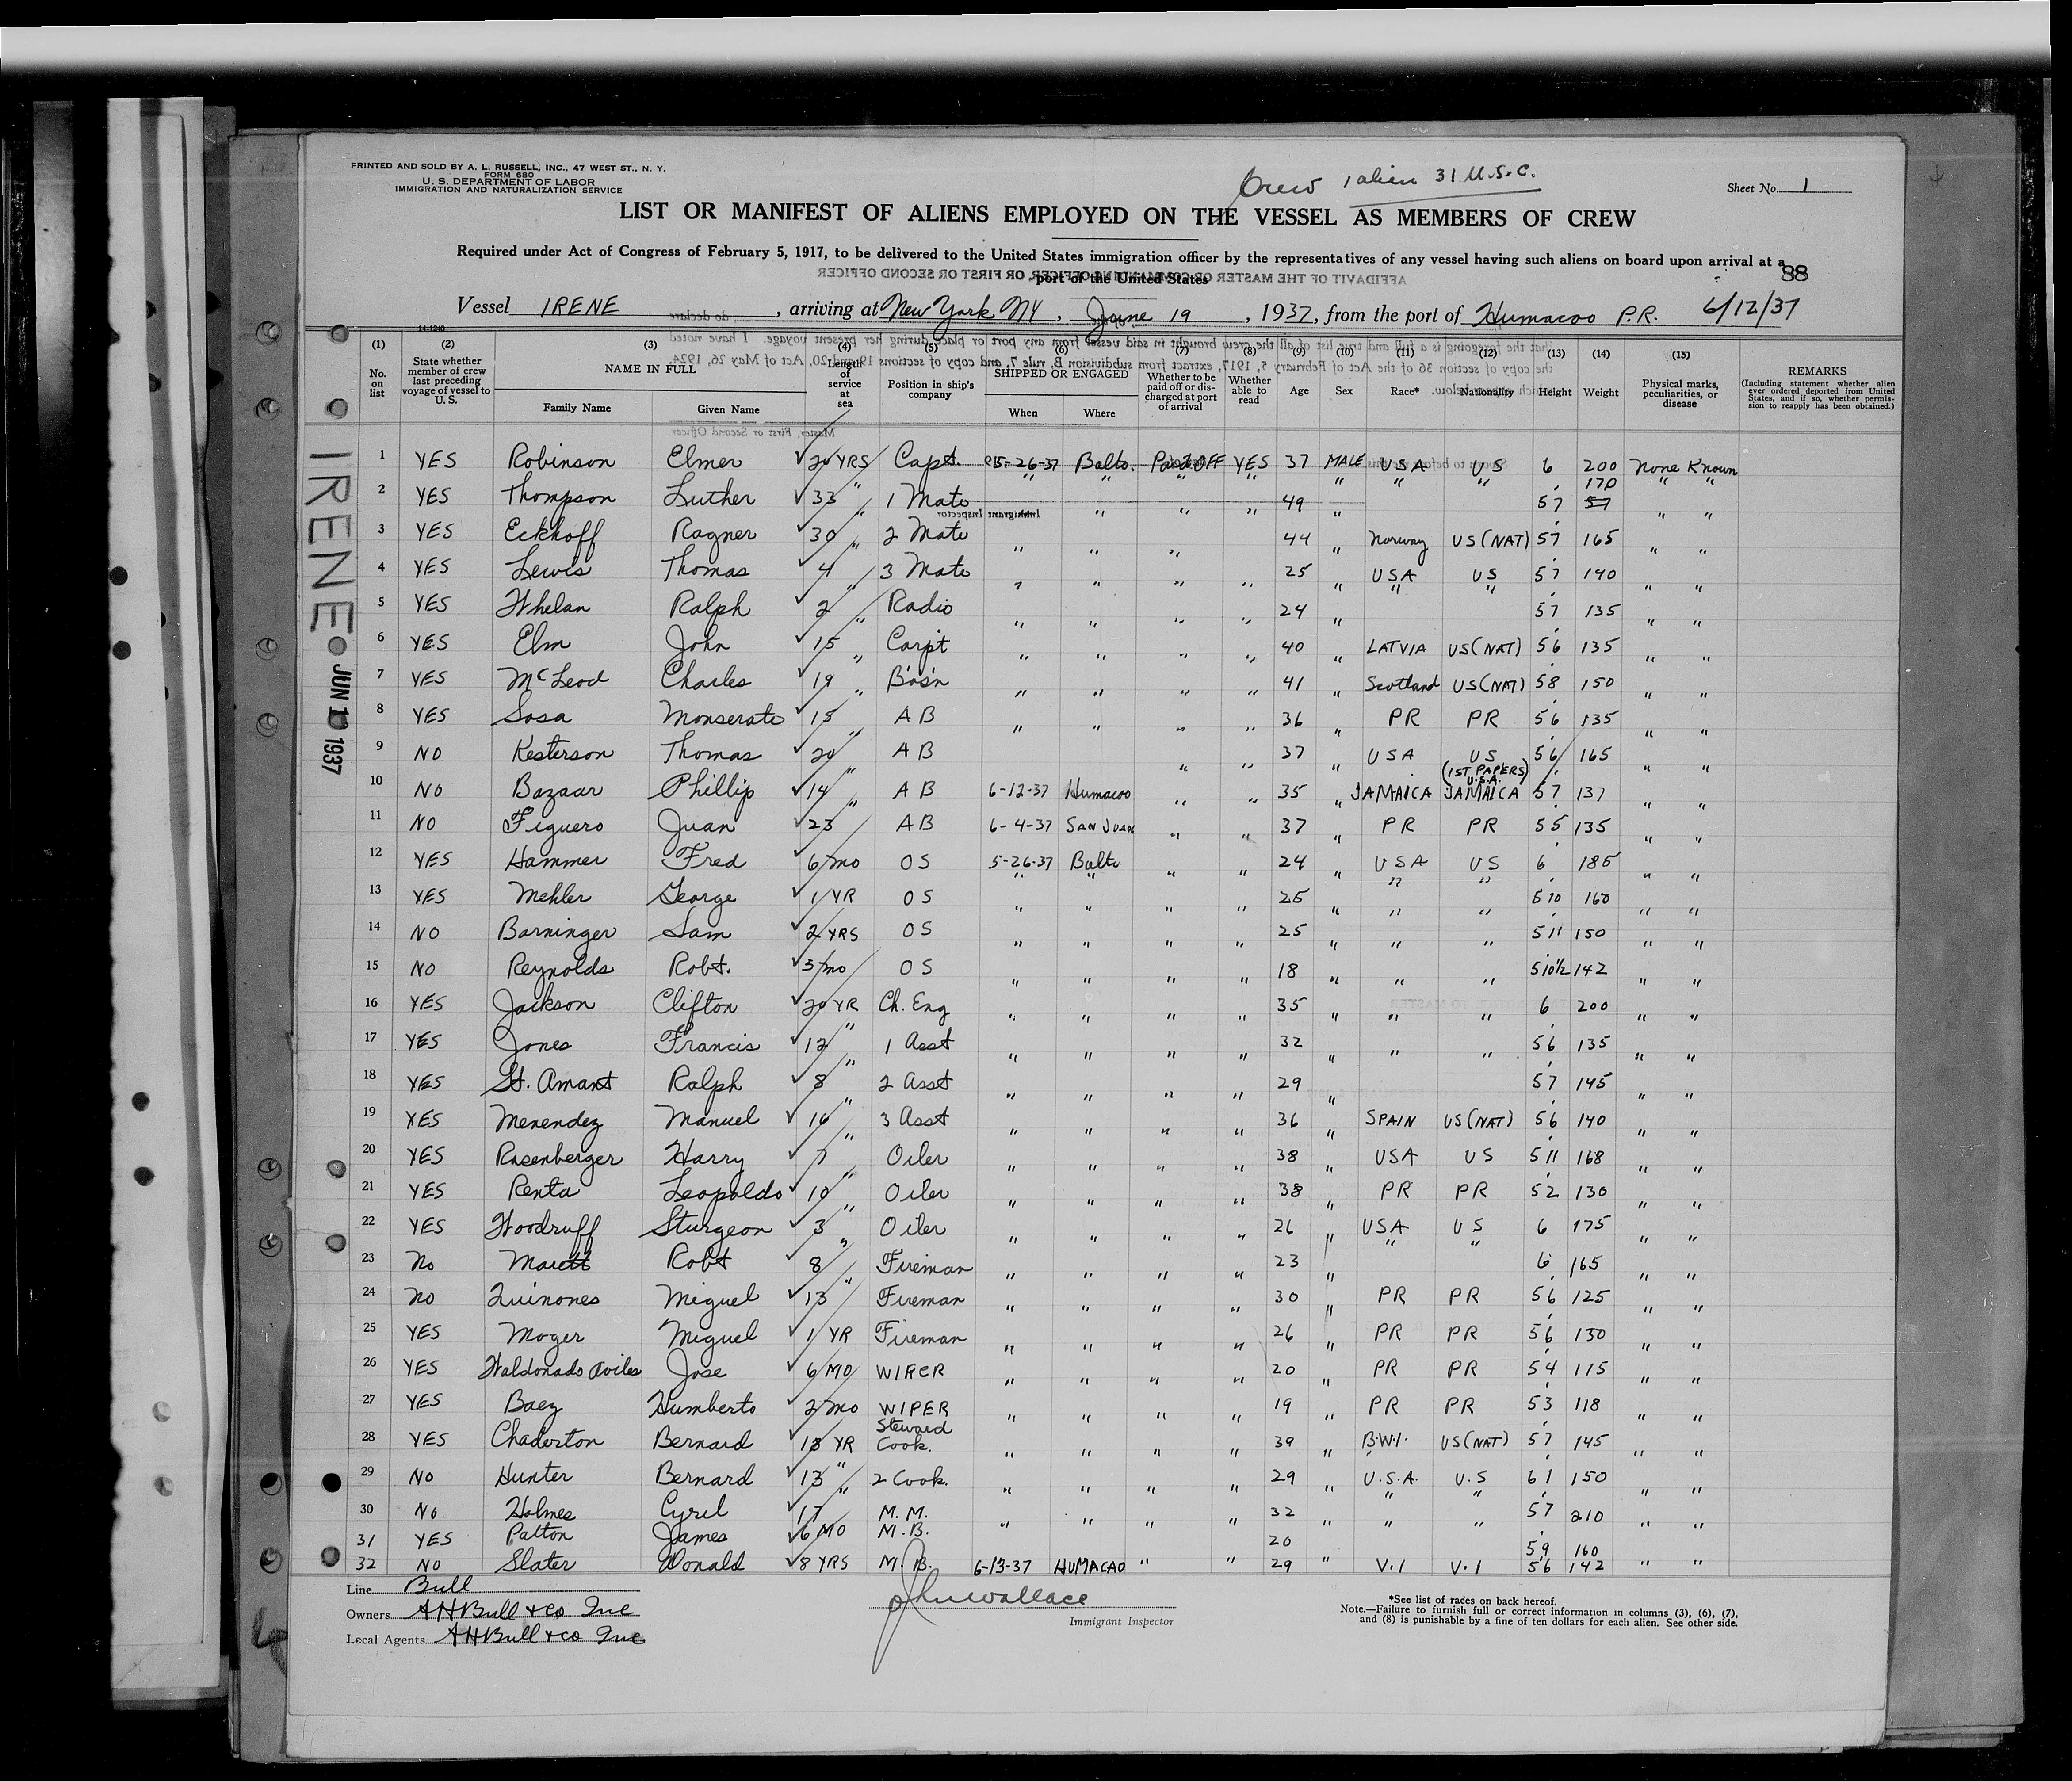 PRINTED AND SOLD BY A. L. RUSSELL, INC., 47 WEST ST., N. Y.
FORM 680
U. S. DEPARTMENT OF LABOR
IMMIGRATION AND NATURALIZATION SERVICE
Crew 1 alien 31 U.S.C.
Sheet No. 1
LIST OR MANIFEST OF ALIENS EMPLOYED ON THE VESSEL AS MEMBERS OF CREW
Required under Act of Congress of February 5, 1917, to be delivered to the United States immigration officer by the representatives of any vessel having such aliens on board upon arrival at a
port of the United States
88
Vessel IRENE, arriving at New York NY, June 19, 1937, from the port of Humacoo P.R. 6/12/37
14-1240
(1) (2) (3) (4) (5) (6) (7) (8) (9) (10) (11) (12) (13) (14) (15)
No. on list
State whether member of crew last preceding voyage of vessel to U. S.
NAME IN FULL
Family Name Given Name
Length of service at sea
Position in ship's company
SHIPPED OR ENGAGED
When Where
Whether to be paid off or discharged at port of arrival
Whether able to read
Age Sex Race* Nationality Height Weight
Physical marks, peculiarities, or disease
REMARKS
(Including statement whether alien ever ordered deported from United States, and if so, whether permission to reapply has been obtained.)
IRENE
JUN 19 1937
1 YES Robinson Elmer 20 YRS Capt. 5-26-37 Balto. Paid OFF YES 37 MALE USA US 6 200 None Known
2 YES Thompson Luther 33 " 1 Mate " " " " 49 " " " 57 170 " "
3 YES Eckhoff Ragner 30 " 2 Mate " " " 44 " Norway US (NAT) 57 165 " "
4 YES Lewis Thomas 4 " 3 Mate " " " " 25 " USA US 57 140 " "
5 YES Whelan Ralph 2 " Radio " " " " 24 " " " 57 135 " "
6 YES Elm John 15 " Carpt " " " " 40 " LATVIA US (NAT) 56 135 " "
7 YES McLeod Charles 19 " Bos'n " " " " 41 " Scotland US (NAT) 58 150 " "
8 YES Sosa Monserate 15 " AB " " " " 36 " PR PR 56 135 " "
9 NO Kesterson Thomas 20 " AB " " 37 " USA US 56 165 " "
10 NO Bazaar Phillip 14 " AB 6-12-37 Humacoo " " 35 " JAMAICA (1ST PAPERS) U.S.A. JAMAICA 57 137 " "
11 NO Figuero Juan 23 AB 6-4-37 SAN JUAN " " 37 " PR PR 55 135 " "
12 YES Hammer Fred 6 mo OS 5-26-37 Balto " " 24 " USA US 6 185 " "
13 YES Mehler George 1 YR OS " " " " 25 " " " 510 160 " "
14 NO Barninger Sam 2 YRS OS " " " " 25 " " " 511 150 " "
15 NO Reynolds Robt. 5 mo OS " " " " 18 " " " 510½ 142 " "
16 YES Jackson Clifton 20 YR Ch. Eng " " " " 35 " " " 6 200 " "
17 YES Jones Francis 12 " 1 Asst " " " " 32 " " " 56 135 " "
18 YES St. Amant Ralph 8 " 2 Asst " " " " 29 " 57 145 " "
19 YES Menendez Manuel 16 " 3 Asst " " " " 36 " SPAIN US (NAT) 56 140 " "
20 YES Rosenberger Harry 7 " Oiler " " " " 38 " USA US 511 168 " "
21 YES Renta Leopoldo 10 " Oiler " " " " 38 " PR PR 52 130 " "
22 YES Woodruff Sturgeon 3 " Oiler " " " " 26 " USA US 6 175 " "
23 No Robt 8 " Fireman " " " " 23 " " " 6 165 " "
24 no Quinones Miguel 13 Fireman " " " " 30 " PR PR 56 125 " "
25 YES Moger Miguel 1 YR Fireman " " " " 26 " PR PR 56 130 " "
26 YES Waldonado Aviles Jose 6 MO WIPER " " " " 20 " PR PR 54 115 " "
27 YES Baez Humberto 2 mo WIPER " " " " 19 " PR PR 53 118 " "
28 YES Chaderton Bernard 18 YR Steward Cook. " " " " 39 " B.W.I. US (NAT) 57 145 " "
29 NO Hunter Bernard 13 " 2 Cook. " " " " 29 " U.S.A. U.S 61 150 " "
30 No Holmes Cyril 17 M. M. " " " " 32 " " " 57 210 " "
31 YES Patton James 6 MO M. B. 20 59 160
32 NO Slater Donald 8 YRS M B. 6-13-37 HUMACAO " " 29 " V.I V.I 56 142 " "
Line Bull
Owners AH Bull & Co Inc
Local Agents AH Bull & Co Inc
John Wallace
Immigrant Inspector
*See list of races on back hereof.
Note.—Failure to furnish full or correct information in columns (3), (6), (7),
and (8) is punishable by a fine of ten dollars for each alien. See other side.